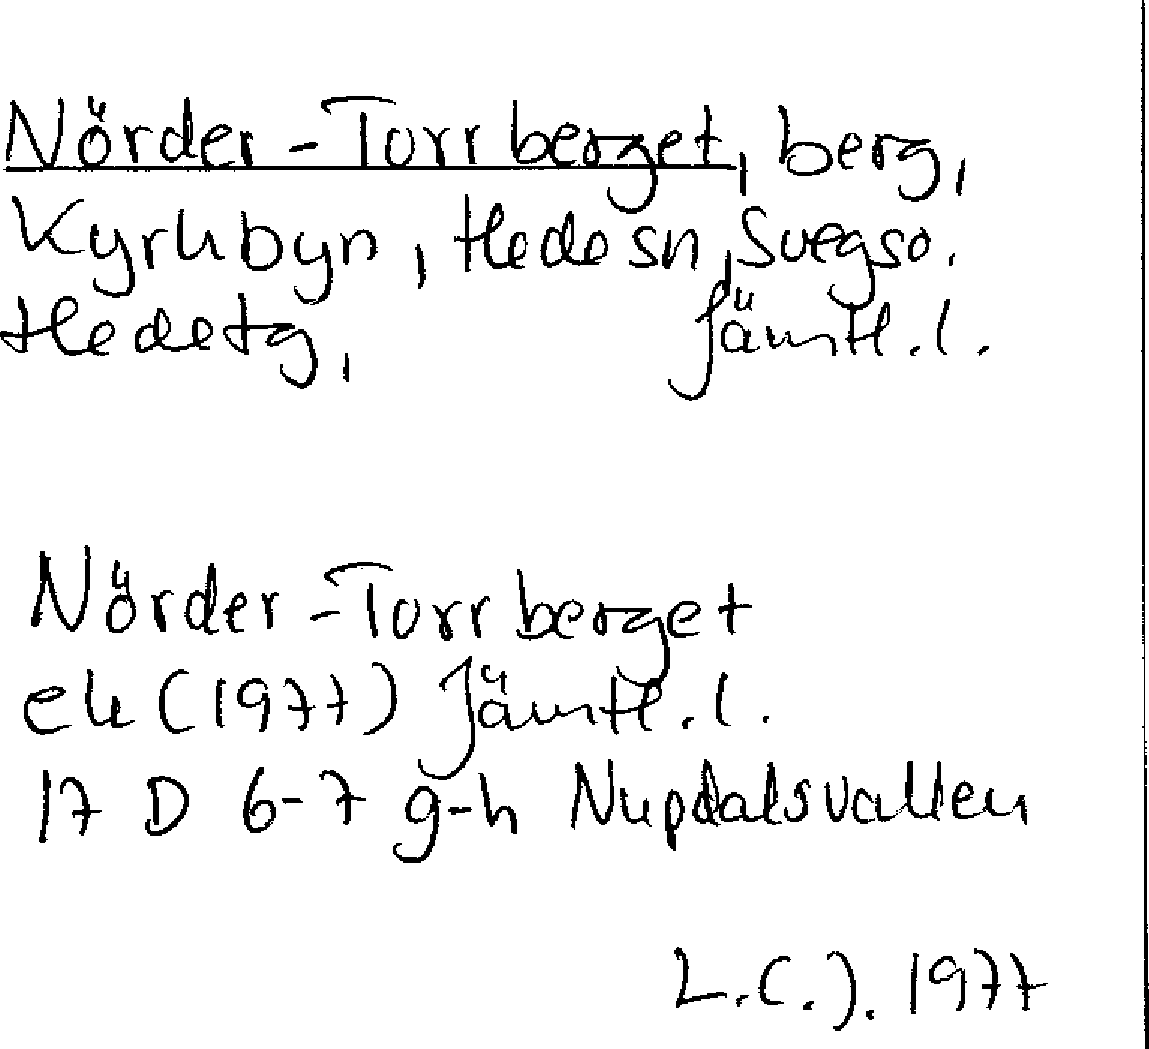 Nörder-Torrberget, berg,
Kyrkbyn, Hede sn, Svegs o.
Hede tg, Jämtl. l.
Nörder-Torrberget
ek (1977) Jämtl. l.
17 D 6-7 g-h Nupdalsvallen
L.C.J. 1977